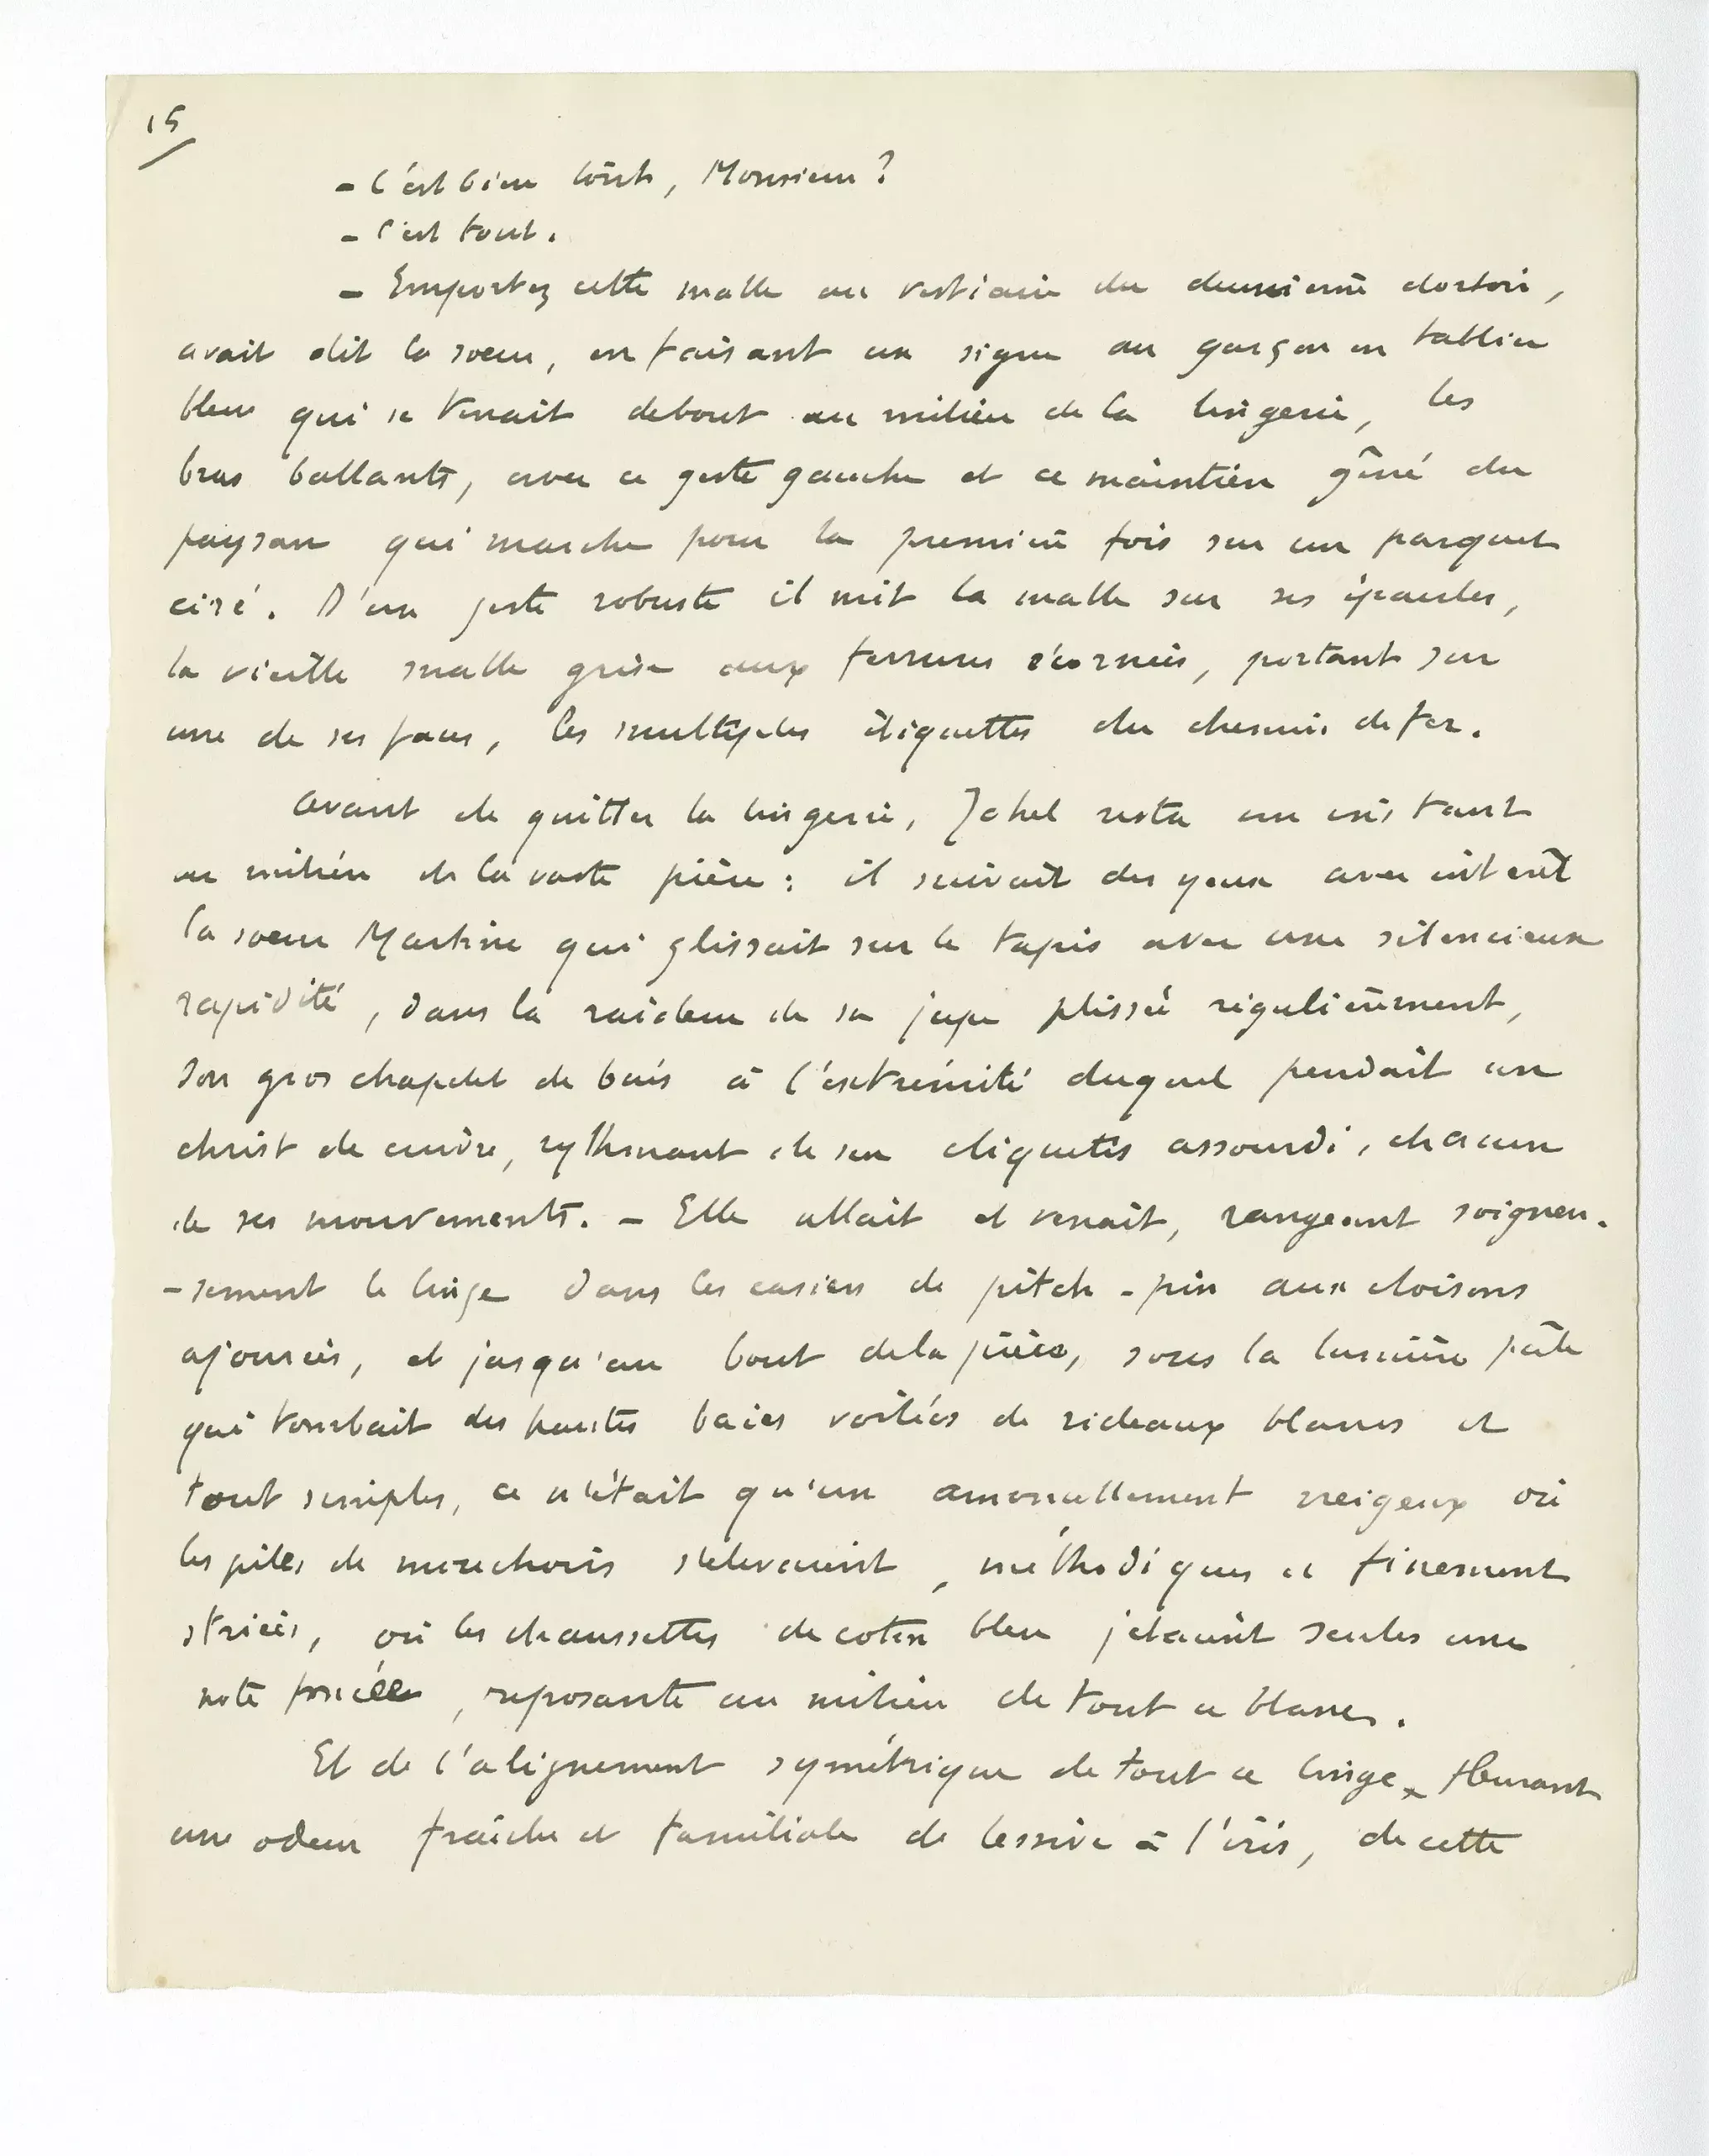 15
- C'est bien tout, Monsieur ?
- C'est tout.
- Emportez cette malle au vestiaire du deuxième dortoir,
avait dit la soeur, en faisant un signe au garçon en tablier
bleu qui se tenait debout au milieu de la lingerie, les
bras ballants, avec ce geste gauche et ce maintien gêné du
paysan qui marche pour la première fois sur un parquet
ciré. D'un geste robuste il mit la malle sur ses épaules,
la vieille malle grise aux ferrures écornées, portant sur
une de ses faces, les multiples étiquettes du chemin de fer.
Avant de quitter la lingerie, Johel resta un instant
au milieu de la vaste pièce : il suivait des yeux avec intérêt
la soeur Martine qui glissait sur le tapis avec une silencieuse
rapidité, dans la raideur de sa jupe plissée régulièrement,
son gros chapelet de buis à l'extrémité duquel pendait un
christ de cuivre, rythmant de son cliquetis assourdi, chacun
de ses mouvements. - Elle allait et venait, rangeant soigneu-
-sement le linge dans les casiers de pitch-pin aux cloisons
ajourées, et jusqu'au bout de la pièce, sous la lumière pâle
qui tombait des hautes baies voilées de rideaux blancs et
tout simples, ce n'était qu'un amoncellement neigeux où
les piles de mouchoirs s'élevaient, méthodiques et finement
striées, où les chaussettes de coton bleu jetaient seules une
note foncée, reposante au milieu de tout ce blanc.
Et de l'alignement symétrique de tout ce linge, fleurant
une odeur fraîche et familiale de lessive à l'iris, de cette